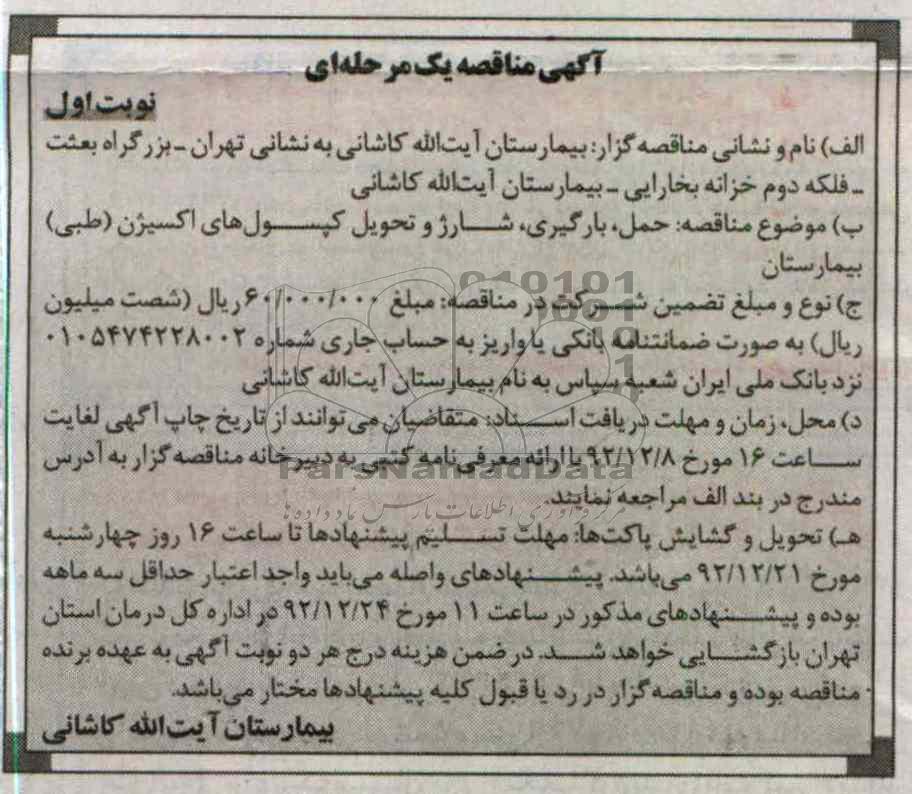 آگهی مناقصه یک مرحله‌ای
نوبت اول
الف) نام و نشانی مناقصه گزار: بیمارستان آیت‌الله کاشانی به نشانی تهران ـ بزرگراه بعثت
ـ فلکه دوم خزانه بخارایی ـ بیمارستان آیت‌الله کاشانی
ب) موضوع مناقصه: حمل، بارگیری، شارژ و تحویل کپسول‌های اکسیژن (طبی)
بیمارستان
ج) نوع و مبلغ تضمین شرکت در مناقصه: مبلغ ۶۰/۰۰۰/۰۰۰ ریال (شصت میلیون
ریال) به صورت ضمانتنامه بانکی یا واریز به حساب جاری شماره ۰۱۰۵۴۷۴۲۲۸۰۰۲
نزد بانک ملی ایران شعبه سپاس به نام بیمارستان آیت‌الله کاشانی
د) محل، زمان و مهلت دریافت اسناد: متقاضیان می‌توانند از تاریخ چاپ آگهی لغایت
ساعت ۱۶ مورخ ۹۲/۱۲/۸ با ارائه معرفی‌نامه کتبی به دبیرخانه مناقصه گزار به آدرس
مندرج در بند الف مراجعه نمایند.
هـ) تحویل و گشایش پاکت‌ها: مهلت تسلیم پیشنهادها تا ساعت ۱۶ روز چهارشنبه
مورخ ۹۲/۱۲/۲۱ می‌باشد. پیشنهادهای واصله می‌باید واجد اعتبار حداقل سه ماهه
بوده و پیشنهادهای مذکور در ساعت ۱۱ مورخ ۹۲/۱۲/۲۴ در اداره کل درمان استان
تهران بازگشایی خواهد شد. در ضمن هزینه درج هر دو نوبت آگهی به عهده برنده
مناقصه بوده و مناقصه گزار در رد یا قبول کلیه پیشنهادها مختار می‌باشد.
بیمارستان آیت‌الله کاشانی
ParsNamadData
مرکز فرآوری اطلاعات پارس نماد داده‌ها